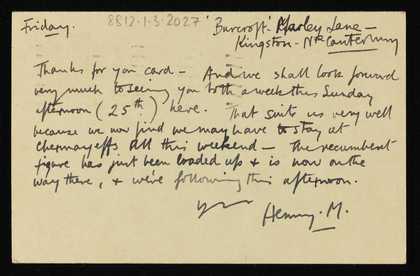 Friday.
8812.1.3.2027
'Burcroft' Marley Lane –
Kingston - Nr Canterbury
Thanks for your card – And we shall look forward
very much to seeing you both a week this Sunday
afternoon (25th) here. That suits us very well
because we now find we may have to stay at
Chermayeffs all this weekend – The recumbent
figure has just been loaded up & is now on the
way there, & we're following this afternoon.
Yrs
Henry. M.